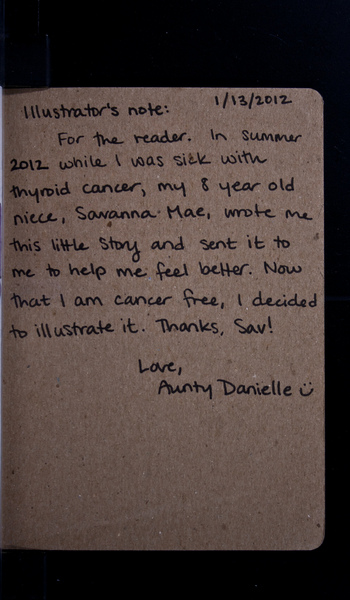 Illustrator's note: 1/13/2012
For the reader. In summer
2012 while I was sick with
thyroid cancer, my 8 year old
niece, Savanna Mae, wrote me
this little story and sent it to
me to help me feel better. Now
that I am cancer free, I decided
to illustrate it. Thanks, Sav!
Love,
Aunty Danielle